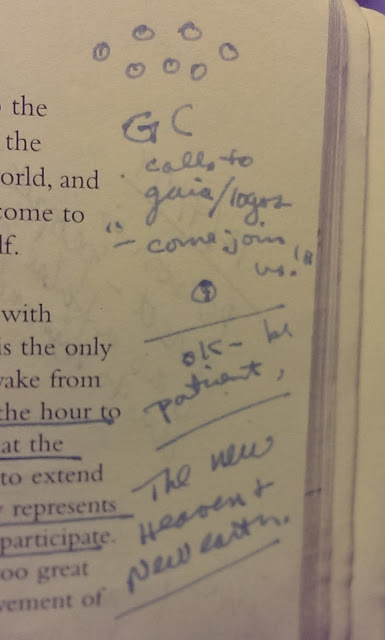 o the
the
orld, and
come to
lf.
with
is the only
wake from
the hour to
at the
to extend
y represents
participate.
oo great
vement of
GC
calls to
gaia/logos
"— come join
us!"
OK – be
patient,
The new
Heaven +
New earth.